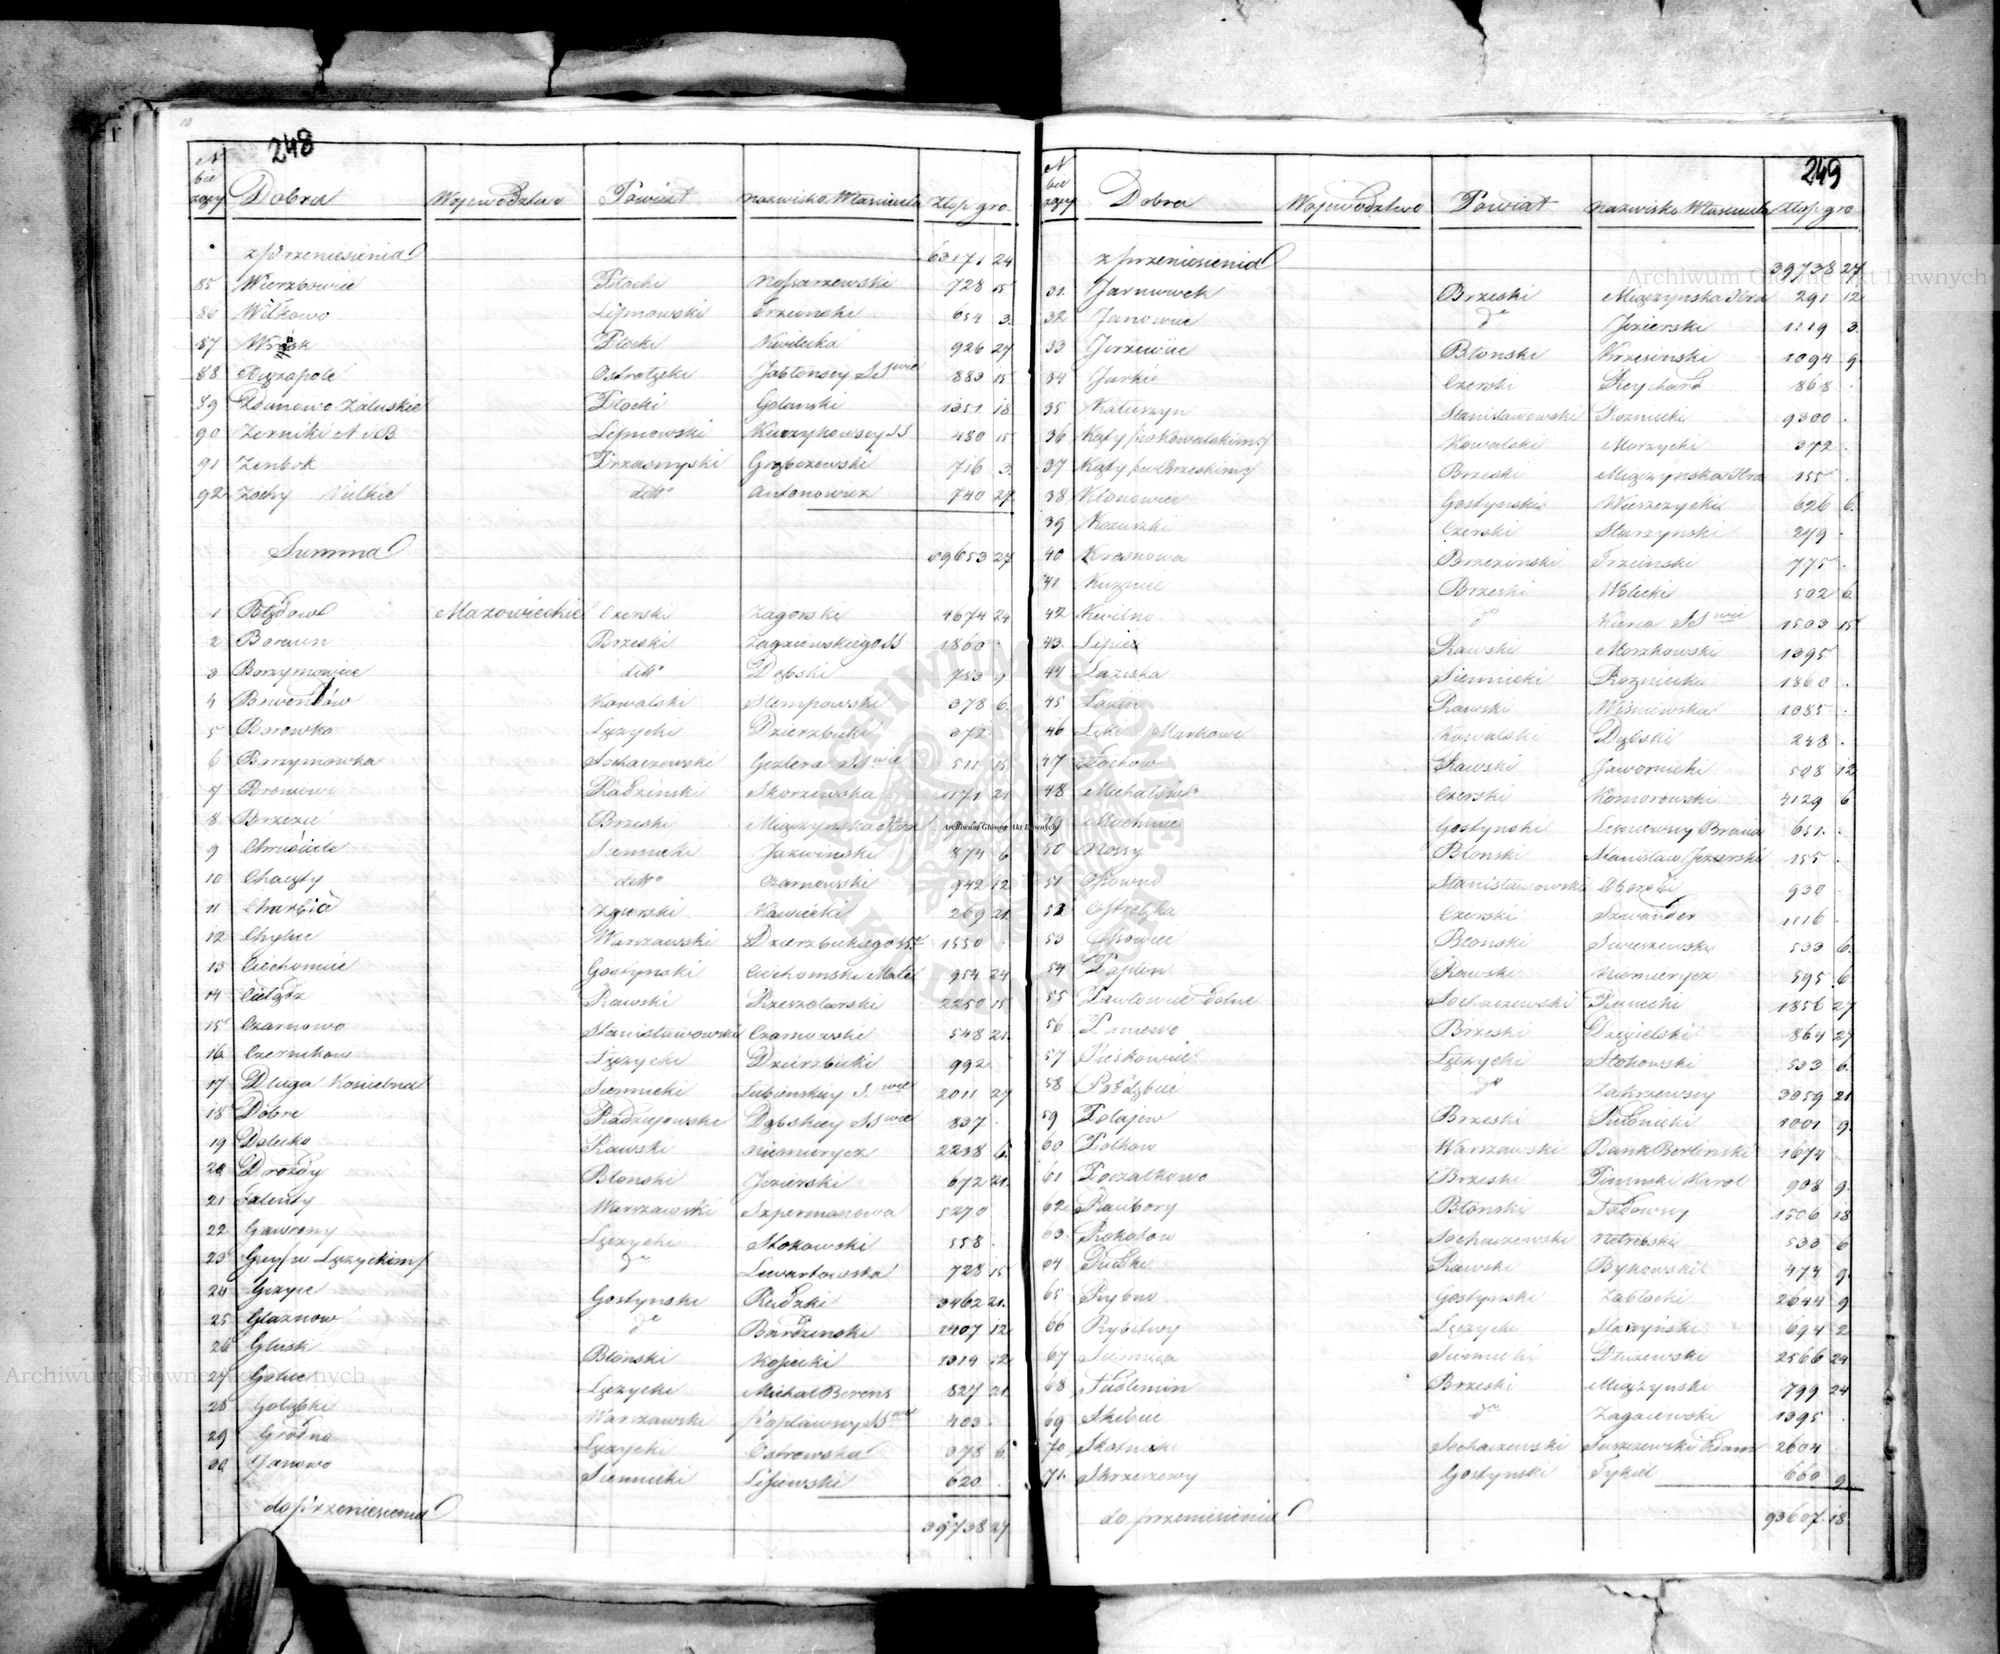 10
248
N bie rzący Dobra Województwo Powiat Nazwisko Właściciela złop gro
z przeniesienia 63171 24
85 Wierzbowiec Płocki Nossarzewski 728 15
86 Witkowo Lipnowski 654 3
87 Płocki Kwilecka 926 27
88 Ostrołęki Jabłonscy SSwie 883 15
89 Zdunowo Załuskie Płocki Golanski 1351 18
90 Zerniki A i B Lipnowski SS 480 15
91 Zenbok Przasnyski Grąbczewski 716 3
92 Zochy Wielkie detto Antonowicz 740 27
Summa 69653 27
1 Błędow Mazowieckie Czerski Zagorski 4674 24
2 Borucin Brzeski SS 1860
3 Borzymowice detto Dębski 753 9
4 Kowalski Stempowski 378 6
5 Borowka Łęczycki Dzierzbicki 372
6 Borzymowka Sochaczewski Gizlera SSwie 511 15
7 Radzinski Skorzewska 1171 21
8 Brzezie Brzeski Miączynska
9 Siennicki Jazwinski 874 6
10 Chaczty detto Czarnowski 942 12
11 Charbic Zgierski Kawiecki 269 21
12 Chylice Warszawski Dzierzbickiego SS 1550
13 Ciechomice Gostynski Ciechomski Mate 954 24
14 Cielądz Rawski Rzeszotarski 2250 15
15 Czarnowo Stanisławowski Czarnowski 548 21
16 Czernikow Łęczycki Dzierzbicki 992
17 Długa Koscielna Siennicki Łubienskiey Swie 2011 27
18 Dobre Radziejowski Dąbskiey SSwie 837
19 Dolecko Rawski Niemierycz 2238 6
20 Drozdy Błonski Jezierski 672 21
21 Falenty Warszawski Szpermanowa 5270
22 Gawrony Łęczycki Stokowski 558
23 Gay /w Łęczyckim/ do Lewartowska 728 15
24 Giżyce Gostynski Rudzki 3462 21
25 Głaznow do Bardzinski 1407 12
26 Głusk Błonski Kosiecki 1314 12
27 Golice Łęczycki Michał Berens 827 21
28 Gołąbki Warszawski SSwie 403
29 Grodno Łęczycki Ostrowska 378 6
30 Janowo Siennicki Lisiewski 620
do przeniesienia 39738 27
249
N bie rzący Dobra Województwo Powiat Nazwisko Właściciela złop gro
z przeniesienia 39738 27
31 Brzeski Miączynska 291 12
32 Janowice do Jezierski 1119 3
33 Błonski Krzesinski 1094 9
34 Jurki Czerski Reychard 868
35 Katuszyn Stanisławowski Rozniecki 9300
36 Kąty /w Kowalskim/ Kowalski Morzycki 372
37 Kąty /w Brzeskim/ Brzeski Miączynska 155
38 Klonowiec Gostynski 626 6
39 Kozuszki Czerski Starzynski 279
40 Krosnowa Brzezinski Trzcinski 775
41 Kuznice Brzeski Wolicki 502 6
42 Kwilno do SSwie 1503 15
43 Lipie Rawski Morzkowski 1395
44 Łaziska Siennicki Roznicka 1860
45 Rawski Wisniewska 1085
46 Łęki Markowe Kowalski Dąbski 248
47 Łochow Rawski Jawornicki 508 12
48 Michałow Czerski Komorowski 4129 6
49 Gostynski 651
50 Mossy Błonski Stanisław Jezierski 155
51 Stanisławowski Oborski 930
52 Ostrołęka Czerski Szwander 1116
53 Osowiec Błonski Swieszewski 533 6
54 Paplin Rawski Niemierycz 595 6
55 Pawłowice Dolne Sochaczewski 1856 27
56 Brzeski 864 27
57 Łęczycki Stokowski 533 6
58 Poddębice do Zakrzewscy 3059 21
59 Połajew Brzeski Sudnicki 1001 9
60 Polkow Warszawski Bank Berlinski 1674
61 Poczałkowo Brzeski Karol 908 9
62 Raubory Błonski 1506 18
63 Rokotow Sochaczewski Notrebski 533 6
64 Rawski Bykowski 474 9
65 Rybno Gostynski Zabłocki 2644 9
66 Rybitwy Łęczycki Starzynski 694 2
67 Siennica Siennicki Dłużewski 2566 24
68 Brzeski Miączynski 799 24
69 do Zagaiewski 1395
70 Skotniki Sochaczewski Suszczewski Adam 2604
71 Skrzeszewy Gostynski Tykiel 660 9
do przeniesienia 93607 18
Archiwum Główne Akt Dawnych
Archiwum Główne Akt Dawnych
Archiwum Główne Akt Dawnych